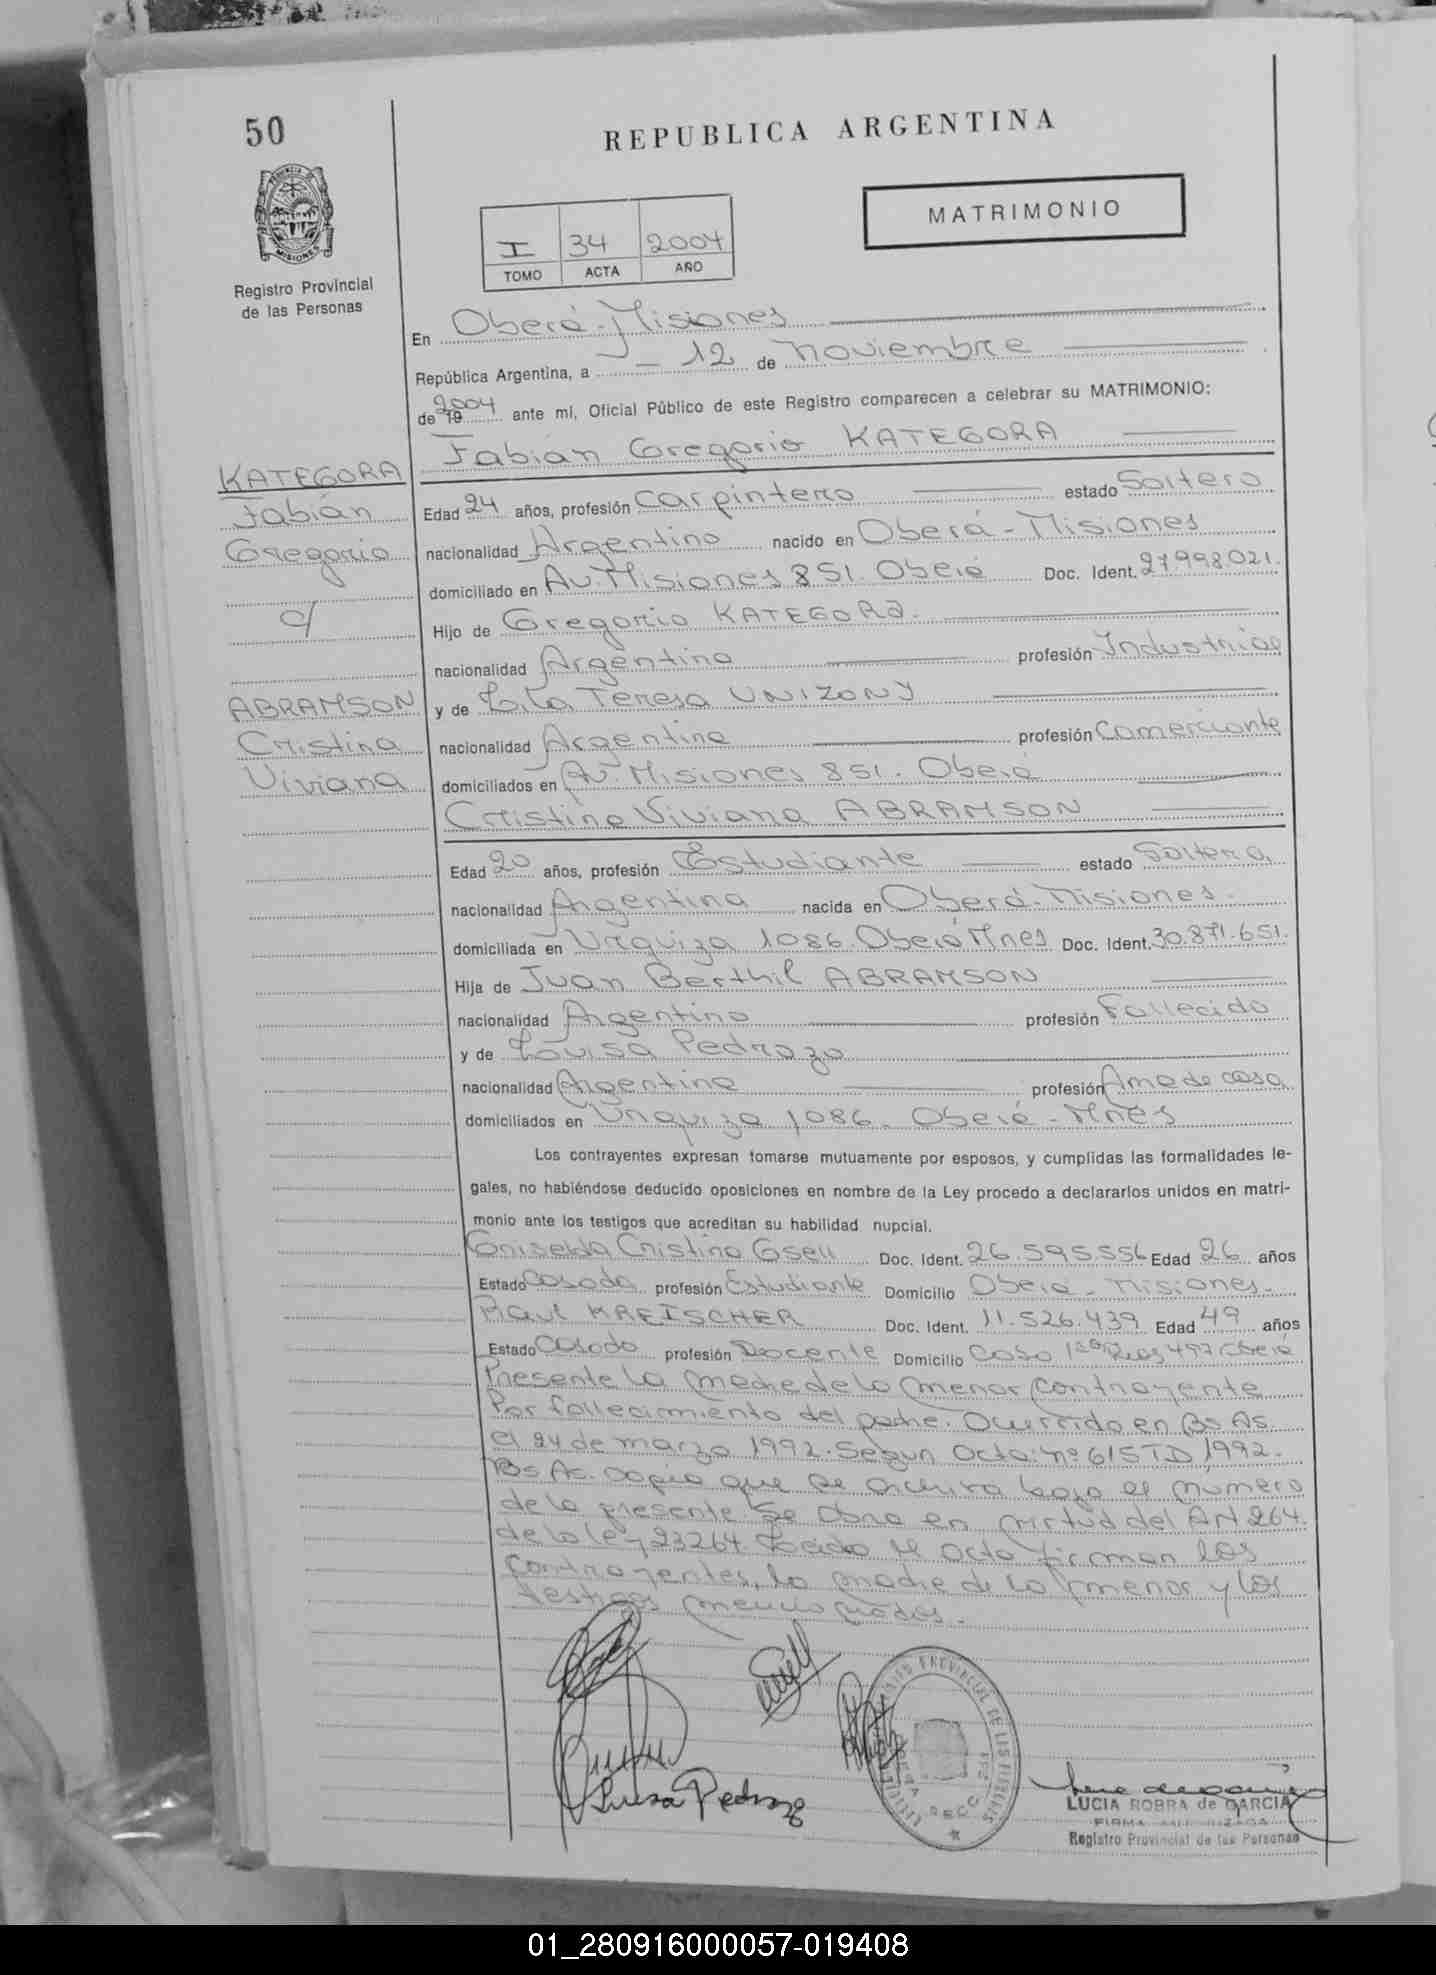 50
REPUBLICA ARGENTINA
MATRIMONIO
PROVINCIA DE
MISIONES
Registro Provincial
de las Personas
I 34 2004
TOMO ACTA AÑO
En Oberá - Misiones
República Argentina, a - 12 de noviembre
de 19 2004 ante mí, Oficial Público de este Registro comparecen a celebrar su MATRIMONIO:
Fabián Gregorio KATEGORA
KATEGORA
Fabián
Gregorio
c/
ABRAMSON
Cristina
Viviana
Edad 24 años, profesión Carpintero estado Soltero
nacionalidad Argentino nacido en Oberá - Misiones
domiciliado en Av. Misiones 851. Oberá Doc. Ident. 27.998.021.
Hijo de Gregorio KATEGORA.
nacionalidad Argentino profesión Industrial
y de Lila Teresa UNIZONY
nacionalidad Argentina profesión Comerciante
domiciliados en Av. Misiones 851. Oberá
Cristina Viviana ABRAMSON
Edad 20 años, profesión Estudiante estado Soltera
nacionalidad Argentina nacida en Oberá - Misiones.
domiciliada en Urquiza 1086. Oberá Mnes Doc. Ident. 30.871.651.
Hija de Juan Berthil ABRAMSON
nacionalidad Argentino profesión Fallecido
y de Louisa Pedrozo
nacionalidad Argentina profesión Ama de casa
domiciliados en Urquiza 1086. Oberá - Mnes
Los contrayentes expresan tomarse mutuamente por esposos, y cumplidas las formalidades le-
gales, no habiéndose deducido oposiciones en nombre de la Ley procedo a declararlos unidos en matri-
monio ante los testigos que acreditan su habilidad nupcial.
Griselda Cristina Gsell Doc. Ident. 26.595.556 Edad 26 años
Estado Casada profesión Estudiante Domicilio Oberá - Misiones.
Raul KREISCHER Doc. Ident. 11.526.439 Edad 49 años
Estado Casado profesión Docente Domicilio 497 Oberá
Presente la madre de la menor contrayente
Por fallecimiento del padre. Ocurrido en Bs As.
el 24 de marzo 1992. Segun Acta: nº 615 TD 1992.
Bs As. copia que se archiva bajo el numero
de la presente. Se obra en virtud del Art 264.
de la ley 23264. Leida el acta firman los
contrayentes, la madre de la menor y los
testigos mencionados.
Luisa Pedrozo
REGISTRO PROVINCIAL DE LAS PERSONAS
OBERA SECC
LUCIA ROBRA de GARCIA
FIRMA AUTORIZADA
Registro Provincial de las Personas
01_280916000057-019408